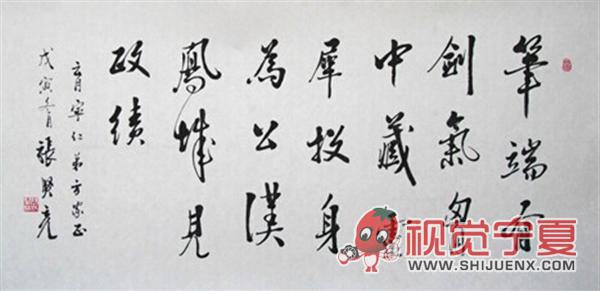 筆端有
劍氣胸
中藏
犀投身
為公僕
鳳城見
政績
育寧仁弟方家正
戊寅冬月 張賢亮
视觉宁夏
WWW.SHIJUENX.COM